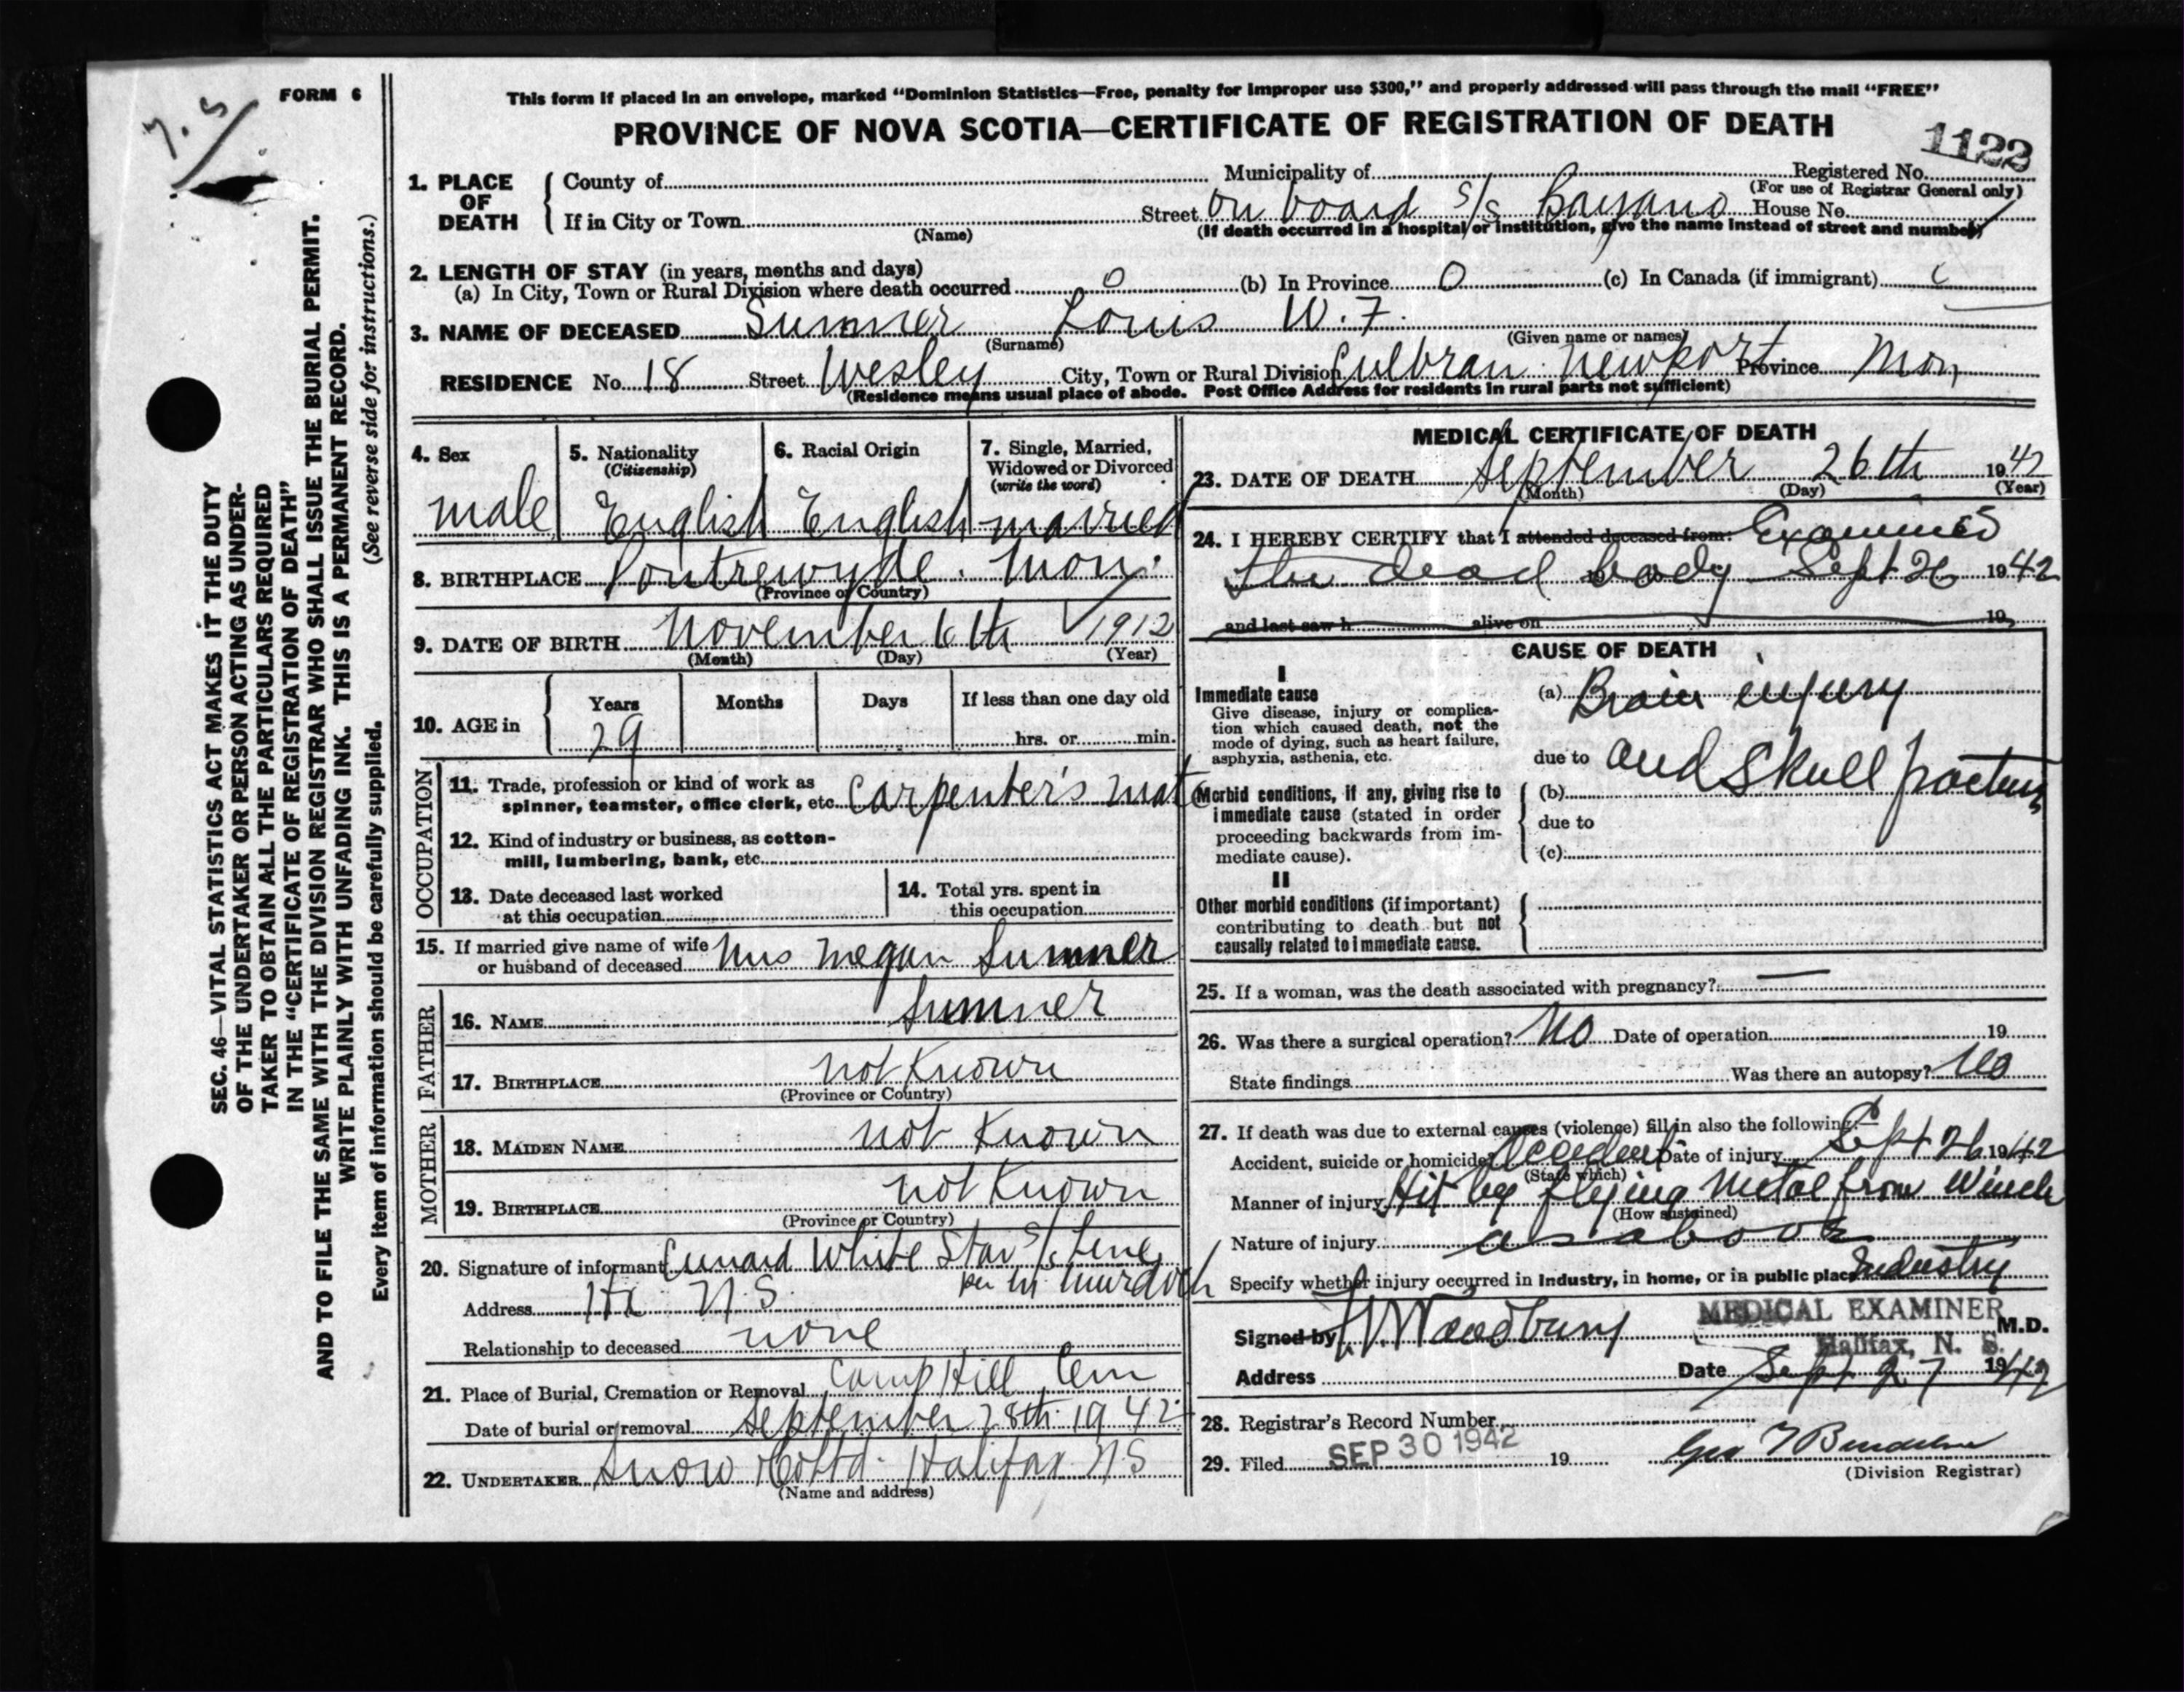 FORM 6
This form if placed in an envelope, marked “Dominion Statistics—Free, penalty for improper use $300,” and properly addressed will pass through the mail “FREE”
PROVINCE OF NOVA SCOTIA—CERTIFICATE OF REGISTRATION OF DEATH
1122
1. PLACE OF DEATH
County of Municipality of Registered No.
(For use of Registrar General only)
If in City or Town Street On board S/S Bayano House No.
(Name) (If death occurred in a hospital or institution, give the name instead of street and number)
2. LENGTH OF STAY (in years, months and days)
(a) In City, Town or Rural Division where death occurred 0 (b) In Province 0 (c) In Canada (if immigrant)
3. NAME OF DECEASED Sumner Louis W. F.
(Surname) (Given name or names)
RESIDENCE No. 18 Street Wesley City, Town or Rural Division Newport Province Mon
(Residence means usual place of abode. Post Office Address for residents in rural parts not sufficient)
4. Sex
male
5. Nationality
(Citizenship)
English
6. Racial Origin
English
7. Single, Married,
Widowed or Divorced
(write the word)
married
8. BIRTHPLACE Mon.
(Province or Country)
9. DATE OF BIRTH November 6th 1912
(Month) (Day) (Year)
10. AGE in
Years Months Days If less than one day old
29 hrs. or min.
OCCUPATION
11. Trade, profession or kind of work as
spinner, teamster, office clerk, etc. Carpenter's mate
12. Kind of industry or business, as cotton-
mill, lumbering, bank, etc.
13. Date deceased last worked
at this occupation
14. Total yrs. spent in
this occupation
15. If married give name of wife
or husband of deceased Mrs Megan Sumner
FATHER
16. NAME Sumner
17. BIRTHPLACE not Known
(Province or Country)
MOTHER
18. MAIDEN NAME not Known
19. BIRTHPLACE not Known
(Province or Country)
20. Signature of informant Cunard White Star S/S Line
per M. Murdoch
Address Hx N.S.
Relationship to deceased none
21. Place of Burial, Cremation or Removal Camp Hill Cem
Date of burial or removal September 28th 1942
22. UNDERTAKER Snow & Co Ltd. Halifax NS
(Name and address)
MEDICAL CERTIFICATE OF DEATH
23. DATE OF DEATH September 26th 1942
(Month) (Day) (Year)
24. I HEREBY CERTIFY that I attended deceased from: Examined
the dead body Sept 26 1942
and last saw h alive on 19
CAUSE OF DEATH
I
Immediate cause
Give disease, injury or complica-
tion which caused death, not the
mode of dying, such as heart failure,
asphyxia, asthenia, etc.
(a) Brain injury
due to and Skull fracture
Morbid conditions, if any, giving rise to
immediate cause (stated in order
proceeding backwards from im-
mediate cause).
(b)
due to
(c)
II
Other morbid conditions (if important)
contributing to death but not
causally related to immediate cause.
25. If a woman, was the death associated with pregnancy? —
26. Was there a surgical operation? No Date of operation 19
State findings Was there an autopsy? No
27. If death was due to external causes (violence) fill in also the following:
Accident, suicide or homicide? Accident Date of injury Sept 26 1942
(State which)
Manner of injury Hit by flying Metal from Winch
(How sustained)
Nature of injury as above
Specify whether injury occurred in industry, in home, or in public place Industry
Signed by Woodbury M.D.
MEDICAL EXAMINER
Halifax, N. S.
Address Date Sept 27 1942
28. Registrar's Record Number
29. Filed SEP 30 1942 19
(Division Registrar)
SEC. 46—VITAL STATISTICS ACT MAKES IT THE DUTY
OF THE UNDERTAKER OR PERSON ACTING AS UNDER-
TAKER TO OBTAIN ALL THE PARTICULARS REQUIRED
IN THE “CERTIFICATE OF REGISTRATION OF DEATH”
AND TO FILE THE SAME WITH THE DIVISION REGISTRAR WHO SHALL ISSUE THE BURIAL PERMIT.
WRITE PLAINLY WITH UNFADING INK. THIS IS A PERMANENT RECORD.
Every item of information should be carefully supplied. (See reverse side for instructions.)